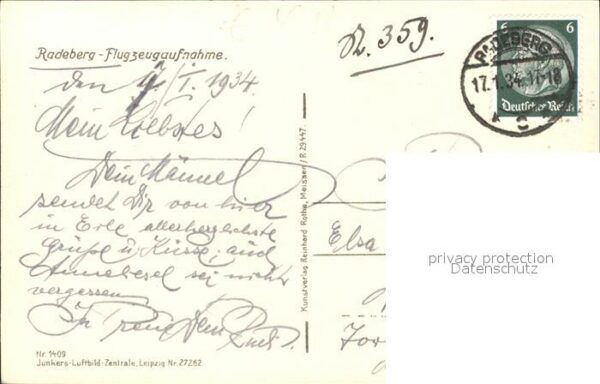 Radeberg - Flugzeugaufnahme.
den 17. I. 1934.
Mein Liebstes!
Dein Männel
sendet Dir von hier
in Eile allerherzlichste
Grüße u. Küsse, auch
Anneliesel sei nicht
vergessen.
In Treue Dein
Nr. 1409
Junkers-Luftbild-Zentrale, Leipzig Nr. 27262
Kunstverlag Reinhard Rothe, Meissen / R 29447.
R. 359.
6 6
RADEBERG
17.1.34.17-18
c
Deutsches Reich
Elsa
privacy protection
Datenschutz